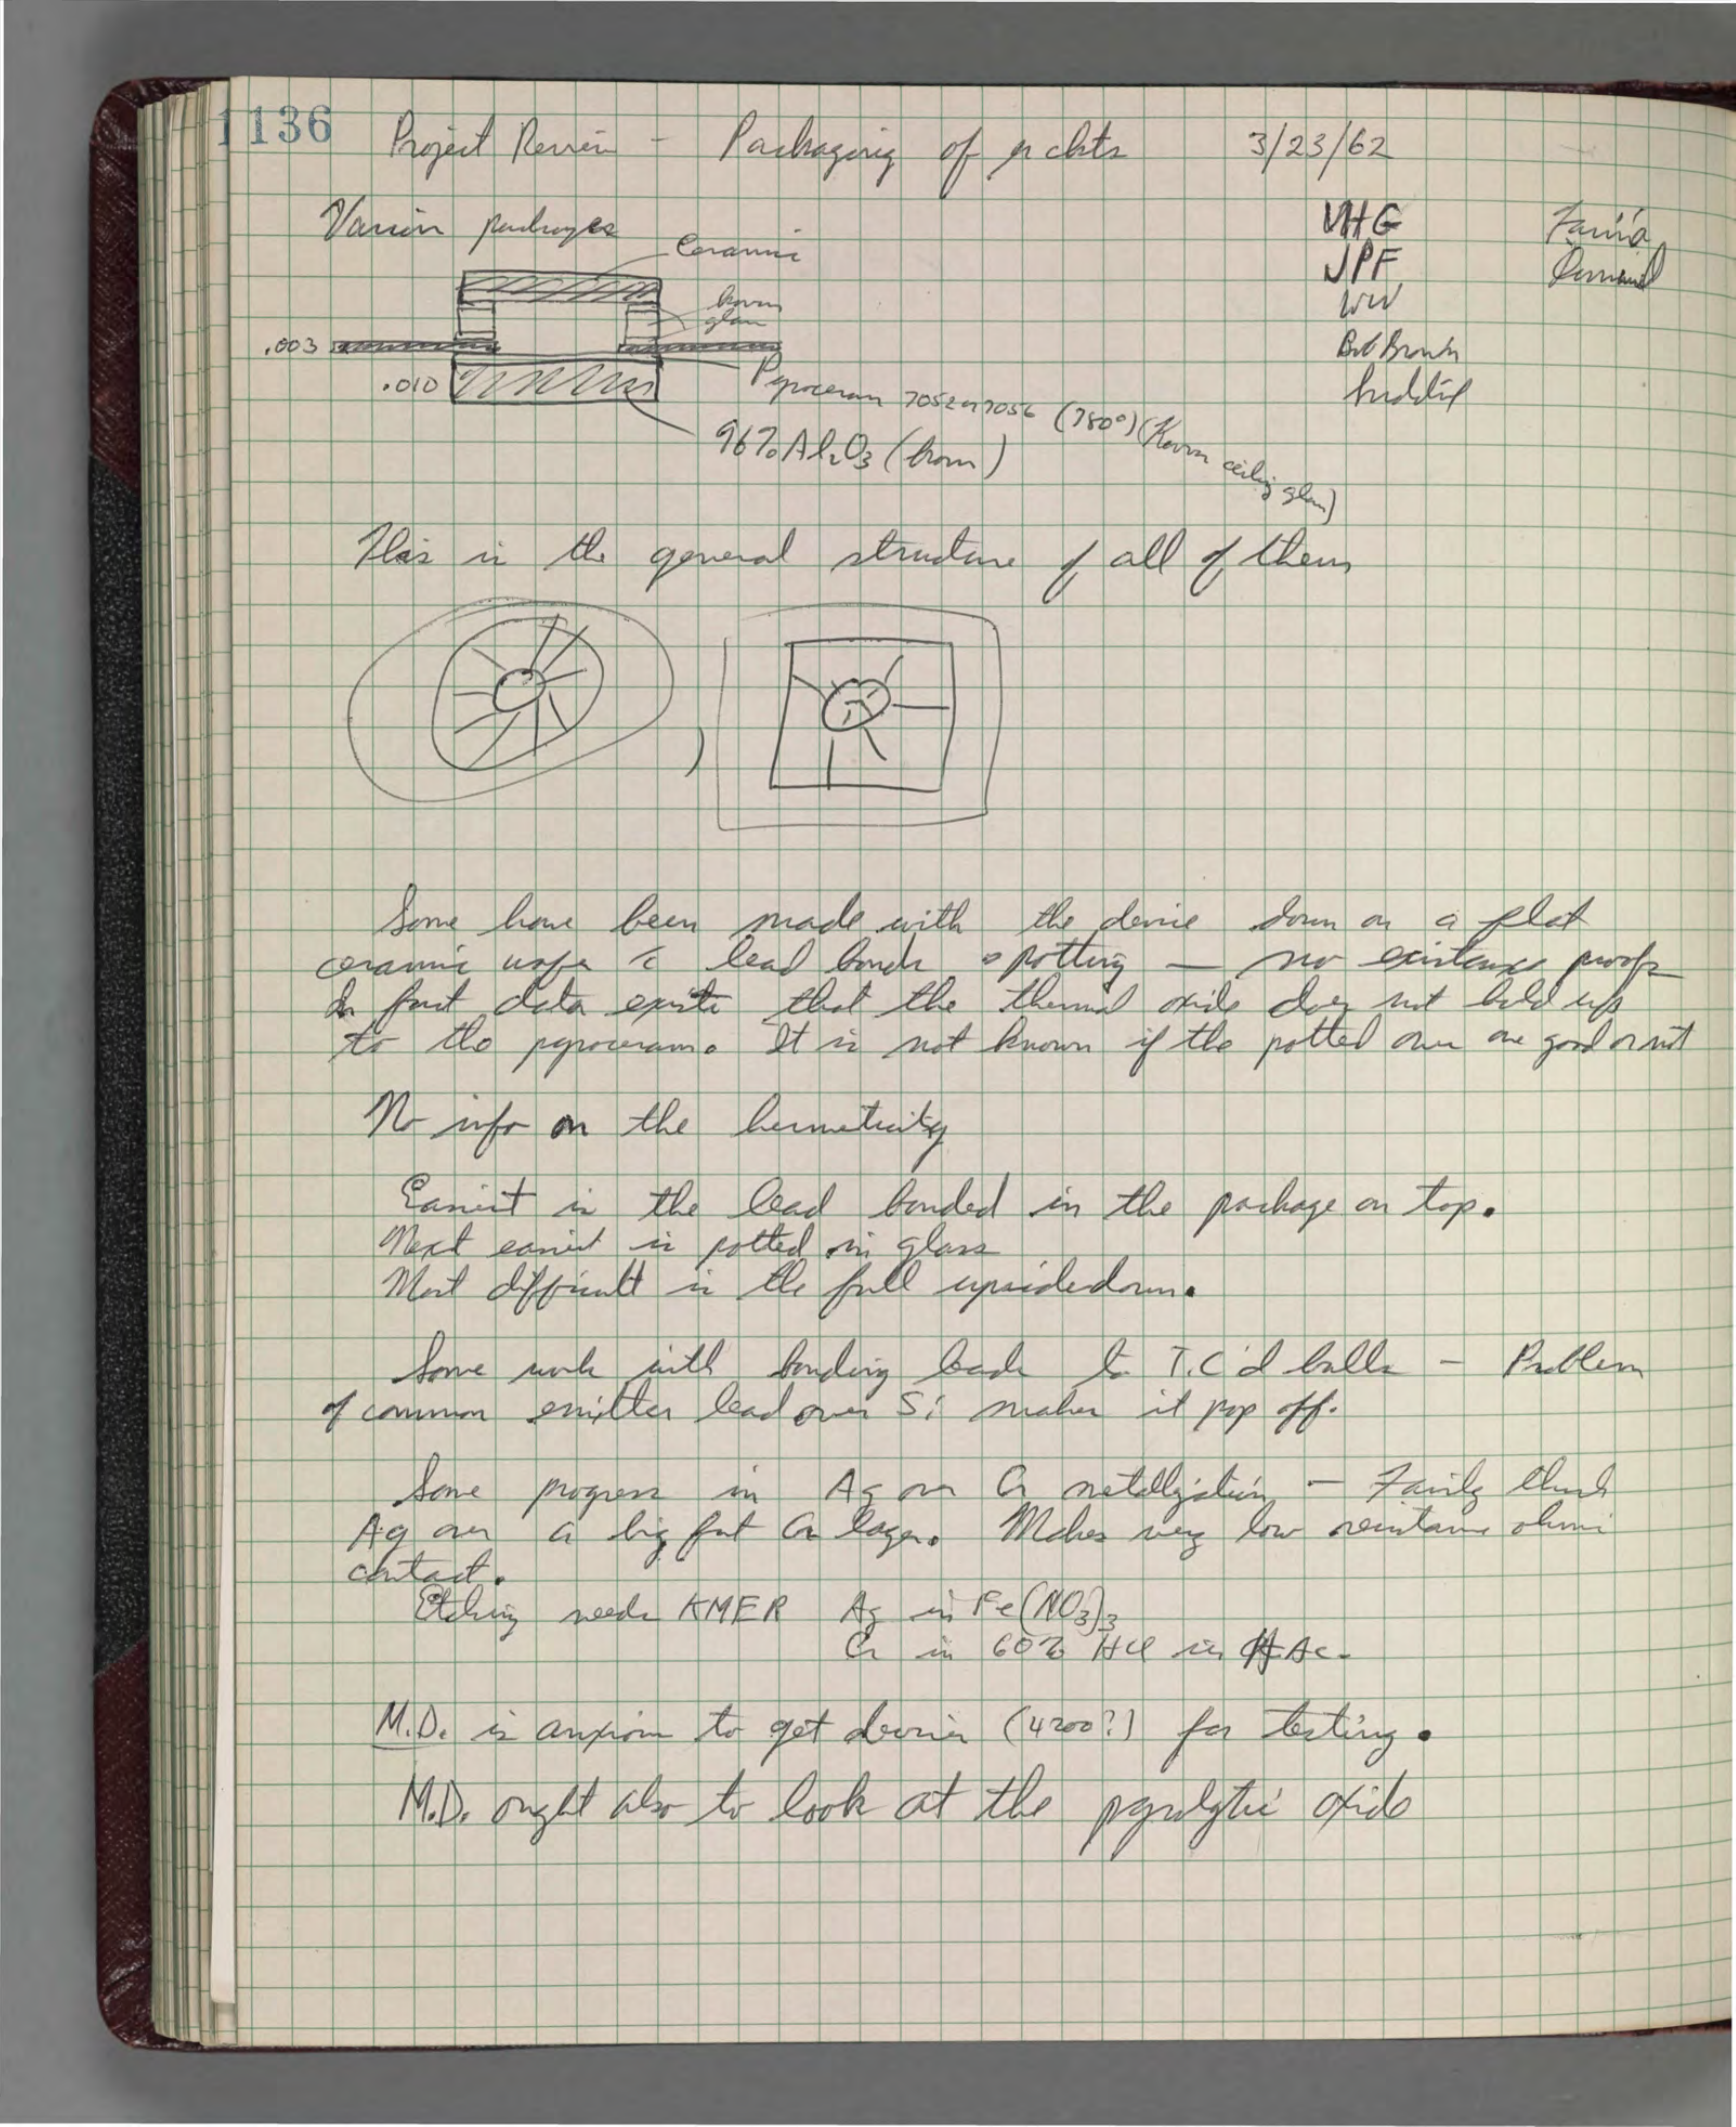 1136
Project Review - Packaging of μ ckts 3/23/62
Various packages
VHG
JPF
WW
Bob Brown
Ceramic
glass
.003
.010
Pyroceram 7052 or 7056 (780°) (Kovar ceiling glass)
96% Al₂O₃ (brown)
This is the general structure of all of them
,
Some have been made with the device down on a flat
ceramic wafer c̄ lead bonds & potting — no existence proofs
In fact data exists that the thermal oxide does not hold up
to the pyroceram. It is not known if the potted ones are good or not
No info on the hermeticity
Easiest is the lead bonded in the package on top.
Next easiest is potted in glass
Most difficult is the full upsidedown.
Some work with bonding leads to T.C'd balls - Problem
of common emitter lead over Si makes it pop off.
Some progress in Ag on Cr metallization - Fairly thick
Ag over a big fat Cr layer. Makes very low resistance ohmic
contact.
Etching needs KMER Ag in Fe(NO₃)₃
Cr in 60% HCl in HAc.
M.D. is anxious to get devices (4200?) for testing.
M.D. ought also to look at the pyrolytic oxide